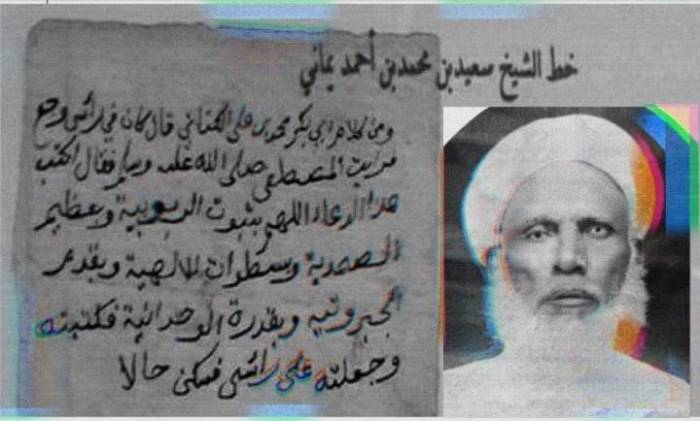 خط الشيخ سعيد بن محمد بن أحمد يماني
ومن كلام ابي بكر محمد بن علي الكتاني قال كان في رأسي وجع
فرايت المصطفى صلى الله عليه وسلم فقال اكتب
هذا الدعاء اللهم بثبوت الربوبية وبعظيم
الصمدية وبسطوات الالهية وبقدم
الجبروتيه وبقدرة الوحدانية فكتبته
وجعلته على رأسي فسكن حالا